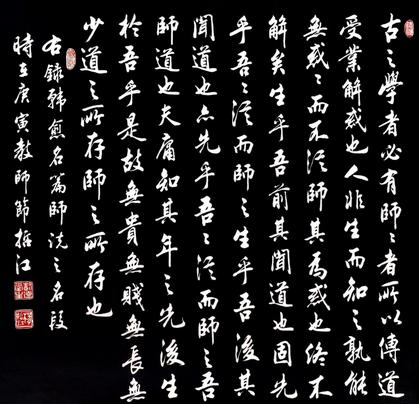 古之學者必有師々者所以傳道
受業解惑也人非生而知之孰能
無惑々而不從師其為惑也終不
解矣生乎吾前其聞道也固先
乎吾々從而師之生乎吾後其
聞道也亦先乎吾々從而師之吾
師道也夫庸知其年之先後生
於吾乎是故無貴無賤無長無
少道之所存師之所存也
右錄韓愈名篇師說之名段
時在庚寅教師節振江